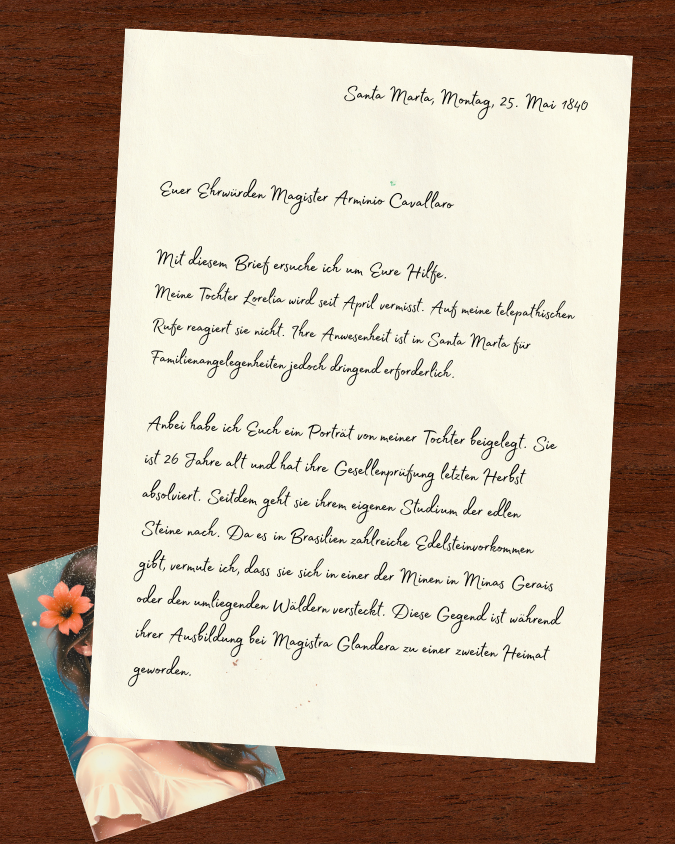 Santa Marta, Montag, 25. Mai 1840
Euer Ehrwürden Magister Arminio Cavallaro
Mit diesem Brief ersuche ich um Eure Hilfe.
Meine Tochter Lorelia wird seit April vermisst. Auf meine telepathischen
Rufe reagiert sie nicht. Ihre Anwesenheit ist in Santa Marta für
Familienangelegenheiten jedoch dringend erforderlich.
Anbei habe ich Euch ein Porträt von meiner Tochter beigelegt. Sie
ist 26 Jahre alt und hat ihre Gesellenprüfung letzten Herbst
absolviert. Seitdem geht sie ihrem eigenen Studium der edlen
Steine nach. Da es in Brasilien zahlreiche Edelsteinvorkommen
gibt, vermute ich, dass sie sich in einer der Minen in Minas Gerais
oder den umliegenden Wäldern versteckt. Diese Gegend ist während
ihrer Ausbildung bei Magistra Glandera zu einer zweiten Heimat
geworden.